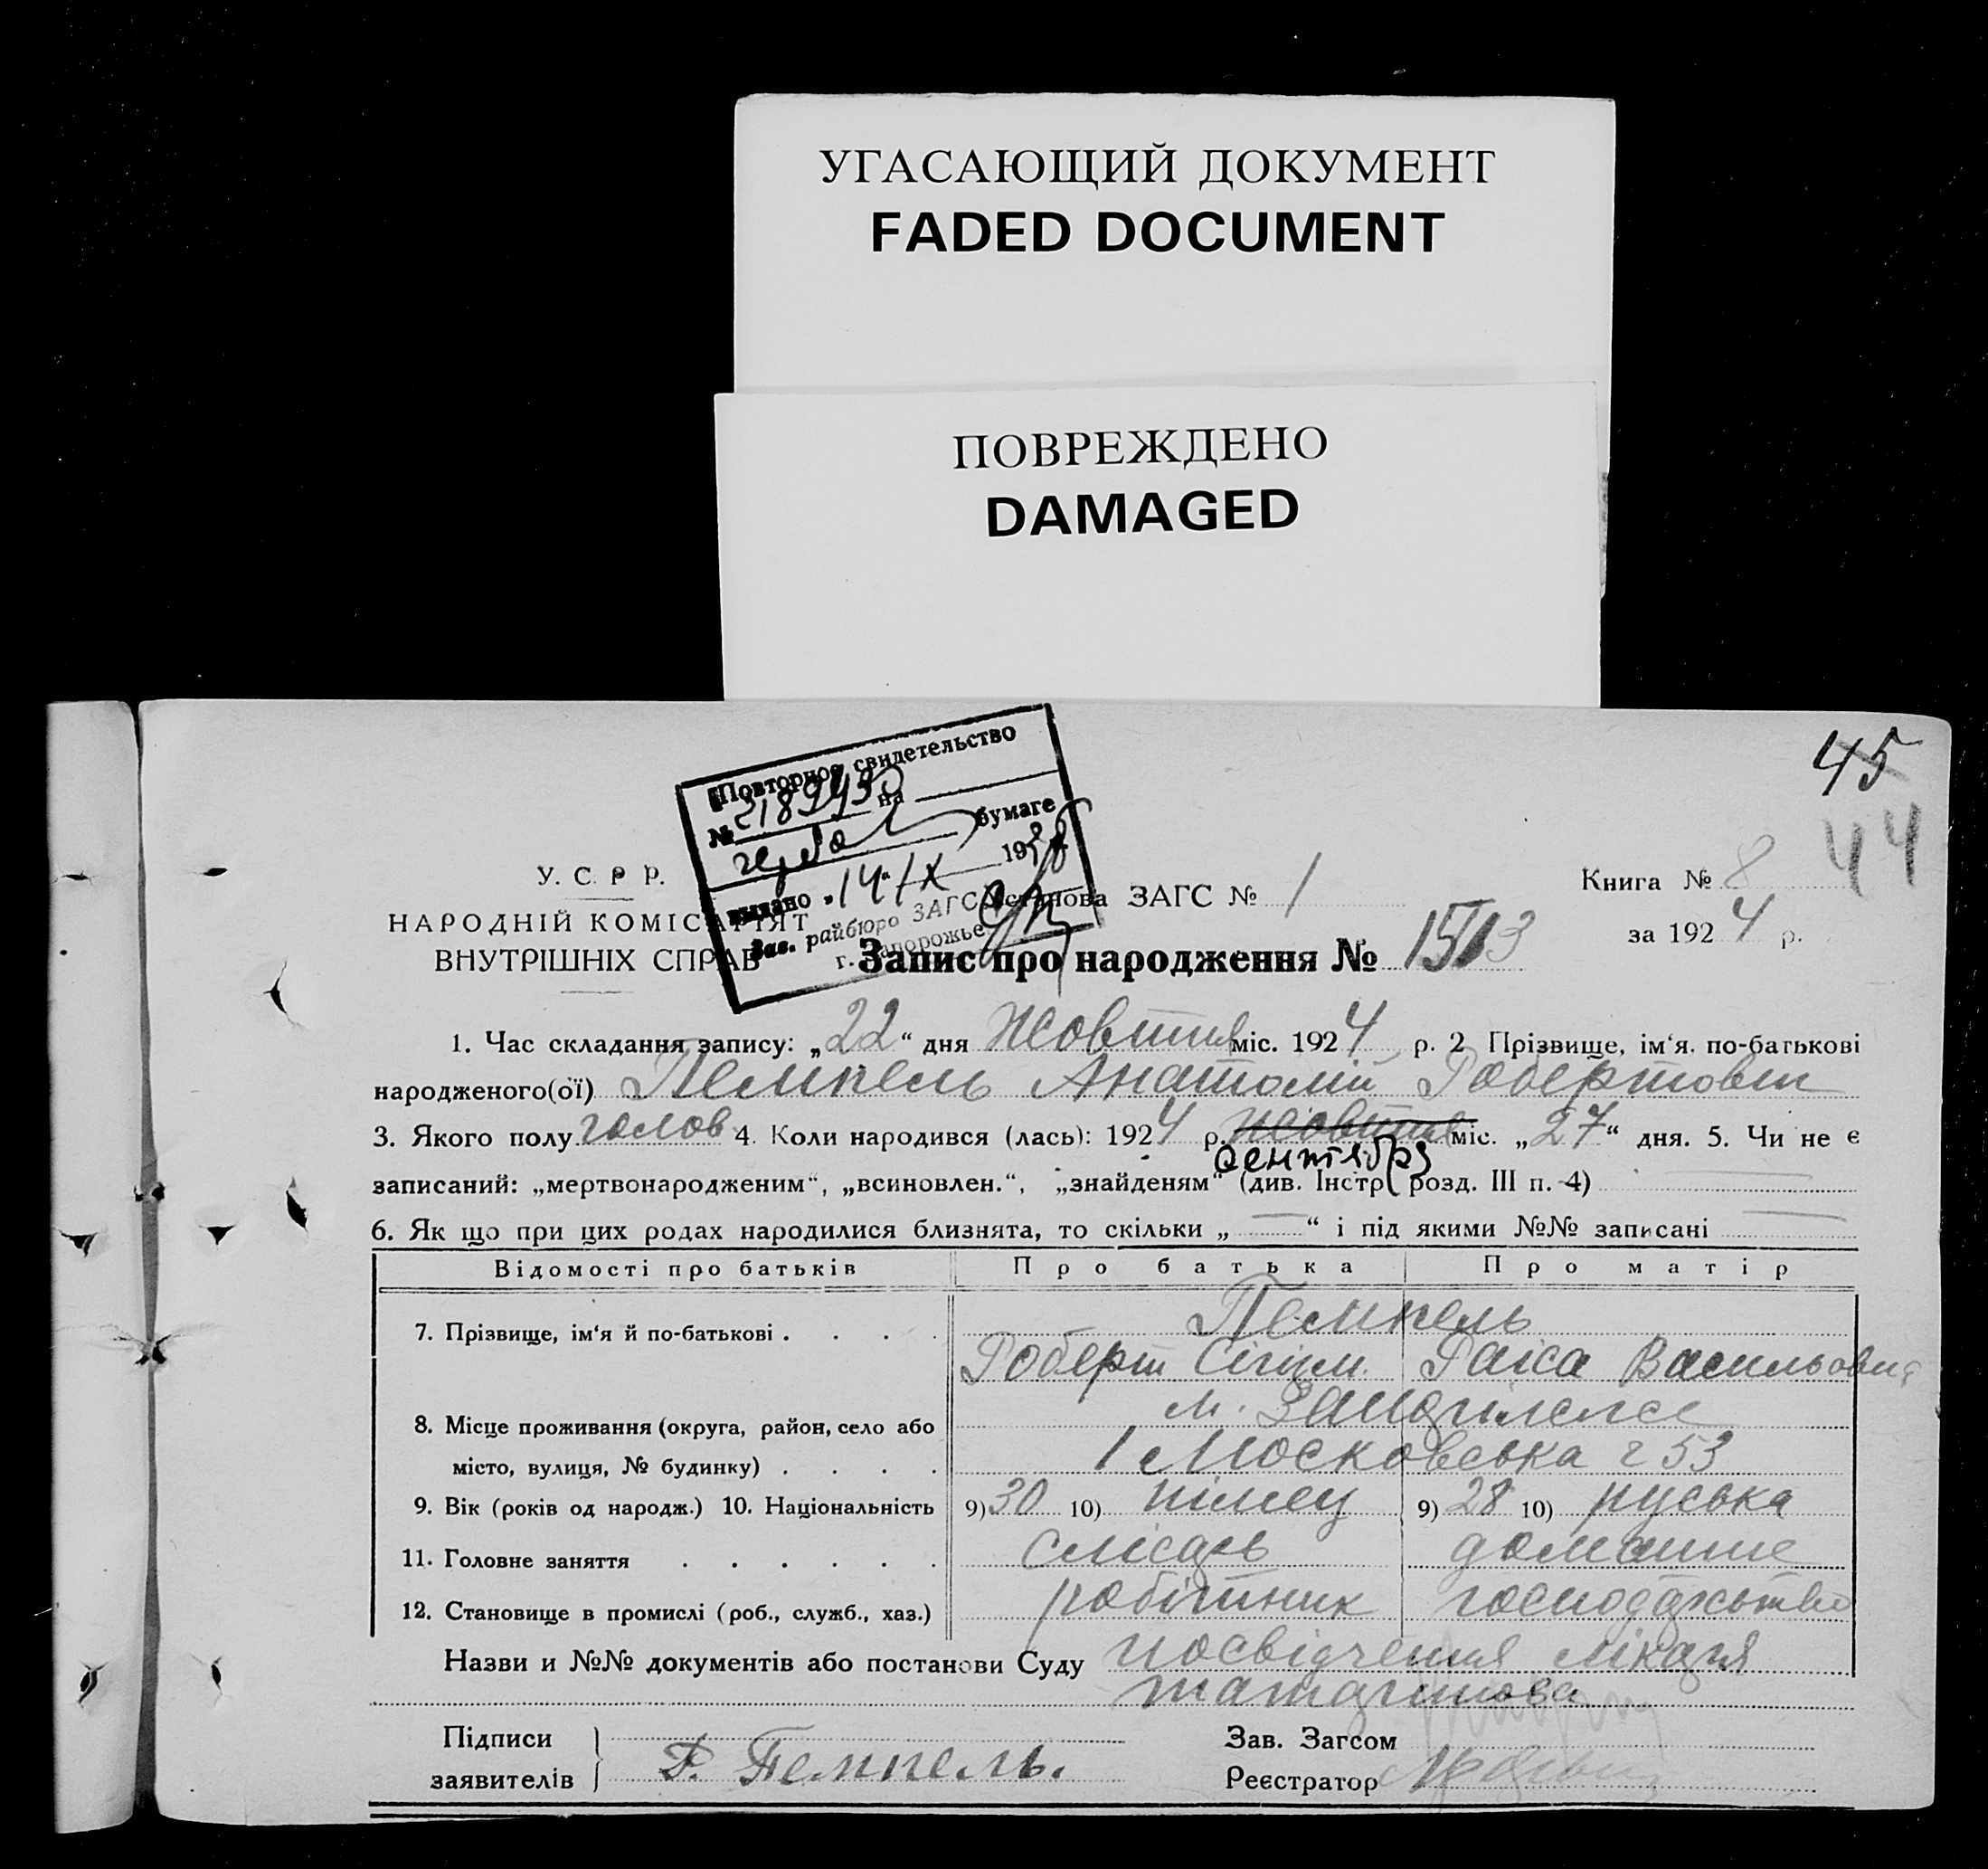 УГАСАЮЩИЙ ДОКУМЕНТ
FADED DOCUMENT
ПОВРЕЖДЕНО
DAMAGED
45
44
Повторное свидетельство
№ 2189430 на
бумаге
выдано „14“ IX 1938
Зав. райбюро ЗАГС
г. Запорожье
У. С. Р Р.
НАРОДНІЙ КОМІСАРІЯТ
ВНУТРІШНІХ СПРАВ
Установа ЗАГС № 1
Книга № 8
за 1924 р.
Запис про народження № 1513
1. Час складання запису: „22“ дня Жовтня міс. 1924 р. 2 Прізвище, ім‘я. по-батькові
народженого(ої) Темпель Анатолій Робертович
3. Якого полу голов. 4. Коли народився (лась): 1924 р. Жовтня міс. „27“ дня. 5. Чи не є
сентября
записаний: „мертвонародженим“, „всиновлен.“, „знайденям“ (див. Інстр розд. III п. 4)
6. Як що при цих родах народилися близнята, то скільки „—“ і під якими №№ записані —
Відомості про батьків Про батька Про матір
7. Прізвище, ім‘я й по-батькові . . . . Темпель
Роберт Раіса Васильовна
8. Місце проживання (округа, район, село або м.
місто, вулиця, № будинку) . . . . Московська 53
9. Вік (років од народж.) 10. Національність 9) 30 10) німец 9) 28 10) руська
11. Головне заняття . . . . . . слюсарь домашне
12. Становище в промислі (роб., служб., хаз.) робітник господарство
Назви и №№ документів або постанови Суду посвідчення лікаря
Підписи
заявителів
Р. Темпель.
Зав. Загсом
Реєстратор